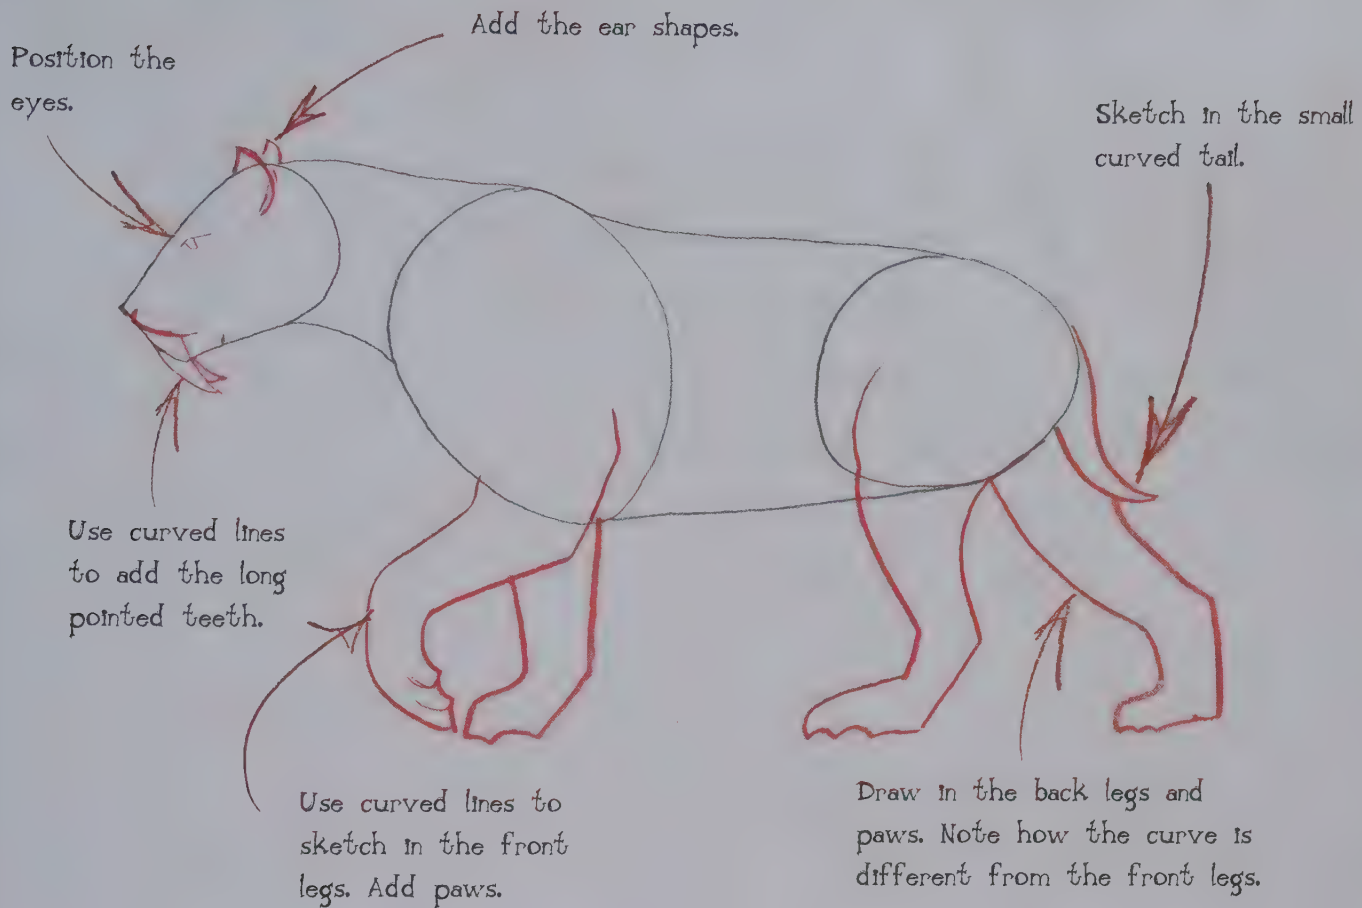 Add the ear shapes.
Position the
eyes.
Sketch in the small
curved tail.
Use curved lines
to add the long
pointed teeth.
Use curved lines to
sketch in the front
legs. Add paws.
Draw in the back legs and
paws. Note how the curve is
different from the front legs.